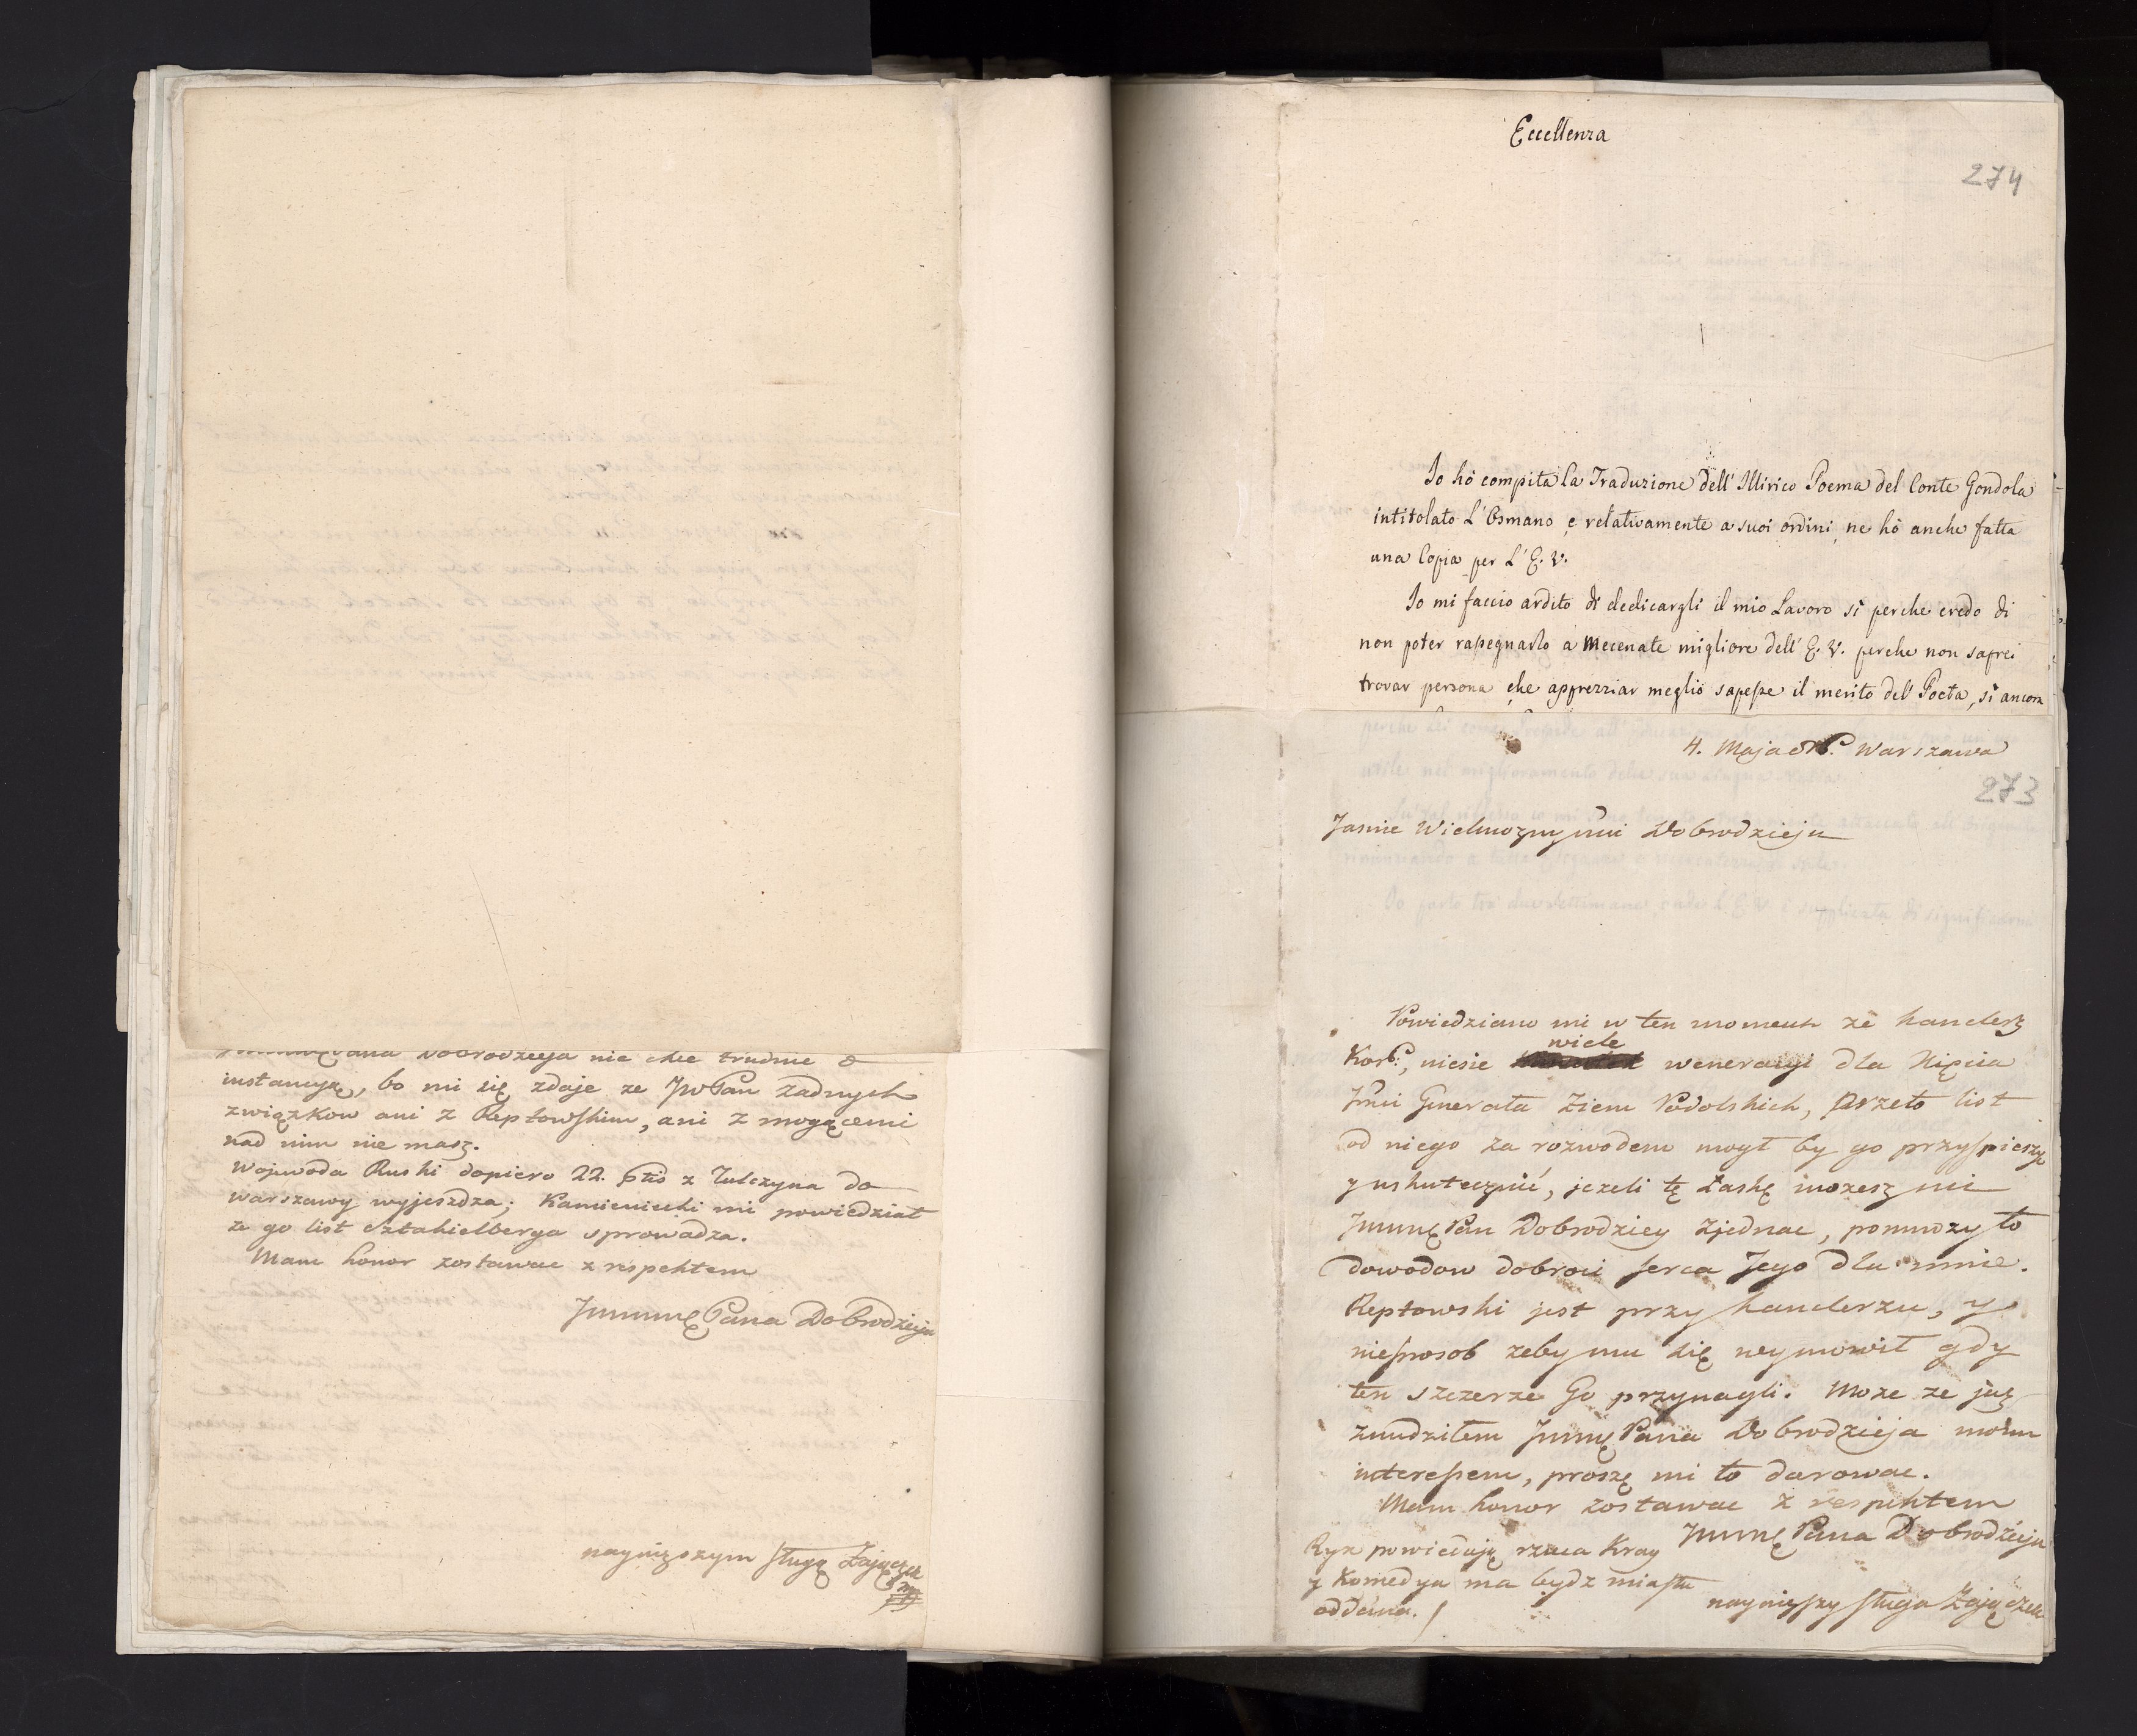 Pana Dobrodzieja nie chce trudnic o
instancyę, bo mi się zdaje ze JWPan żadnych
związkow ani z Reptowskim, ani z mogącemi
nad nim nie masz.
Wojewoda Ruski dopiero 22. ptis z Tulczyna do
warszawy wyjeszdza; Kamieniecki mi powiedział
ze go list Sztakielberga sprowadza.
Mam honor zostawac z respektem
Jmmnę Pana Dobrodzieja
naynizszym sługą Zajączek
Eccellenza
274
Io hò compita la Traduzione dell' Illirico Poema del Conte Gondola
intitolato L'Osmano, e relativamente a suoi ordini, ne hò anche fatta
una Copia per L'E. V.
Io mi faccio ardito di dedicargli il mio Lavoro sì perche credo di
non poter rasegnarlo a Mecenate migliore dell' E. V. perche non saprei
trovar persona che apprezziar meglio sapesse il merito del Poeta, sì ancora
4. Maja Warszawa
273
Jasnie Wielmozny Dobrodzieju
Powiedziano mi w ten moment ze kanclerz
wiele
Kor:, niesie weneracyi dla Xięcia
Jmci Generała Ziem Podolskich, przeto list
od niego za rozwodem mogł by go przyspieszyc
y uskutecznić, jezeli tę Łaskę mozesz mi
Jmmnę Pan Dobrodziey zjednac, pomnozy to
dowodow dobroci serca Jego dla mnie.
Reptowski jest przy kanclerzu, y
niesposob zeby mu się wymowił gdy
ten szczerze Go przynagli. Moze ze juz
znudziłem Jmmnę Pana Dobrodzieja moim
interessem, proszę mi to darowac.
Mam honor zostawac z respektem
Jmmnę Pana Dobrodzieja
Ryx powiedają rzuca Kray
y Komedya ma bydz miastu
oddana.
naynizszy sługa Zajączek